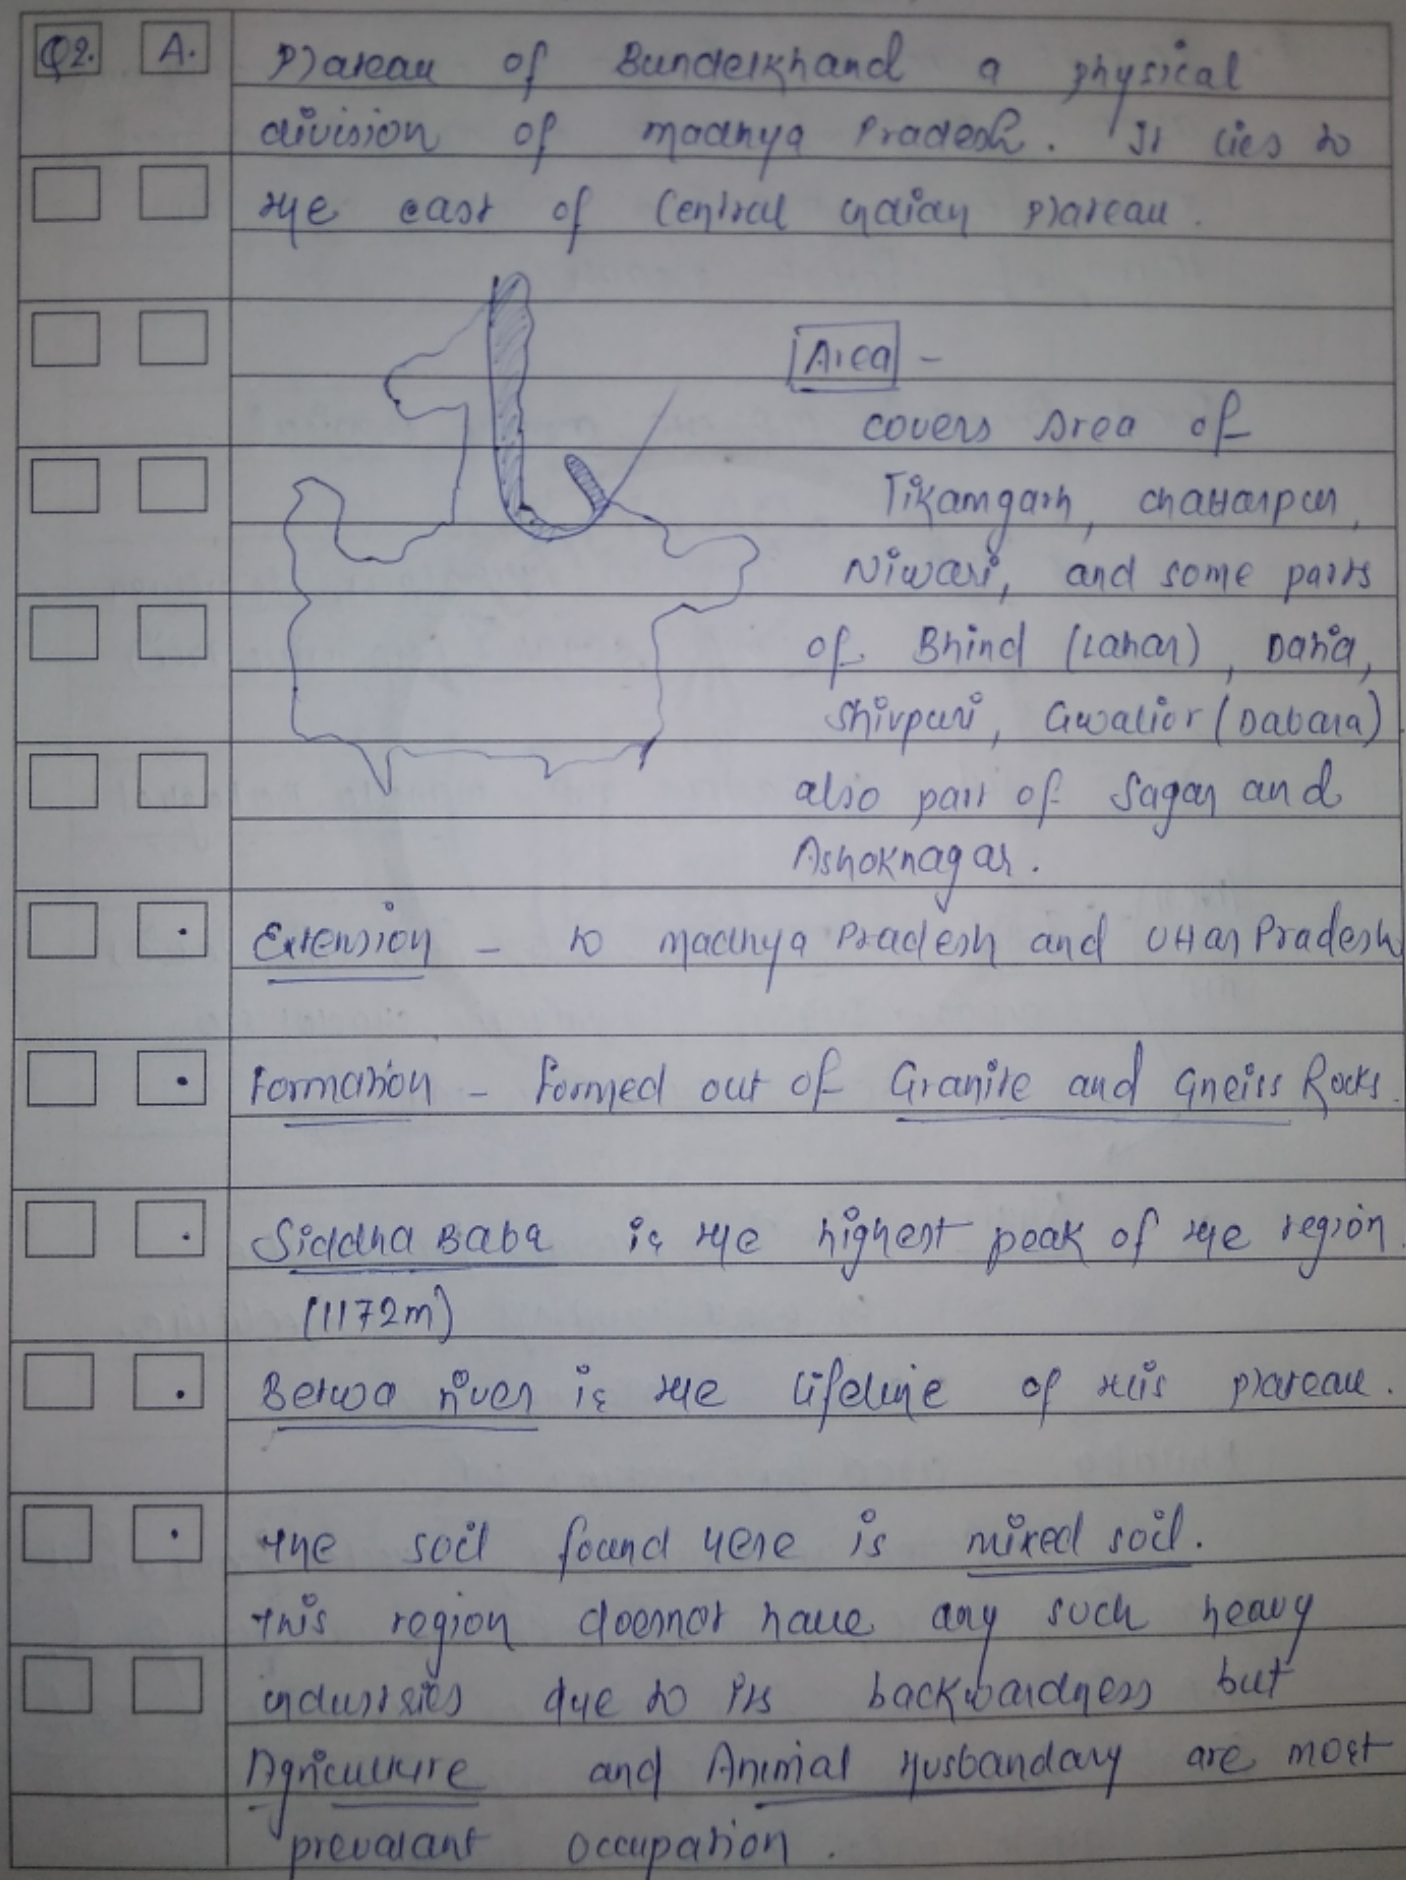 Q2. A. Plateau of Bundelkhand a physical
division of Madhya Pradesh. It lies to
the east of Central Indian Plateau.
Area -
covers Area of
Tikamgarh, chattarpur,
Niwari, and some parts
of Bhind (Lahar), Datia,
Shivpuri, Gwalior (Dabara)
also part of Sagar and
Ashoknagar.
Extension - to Madhya Pradesh and Uttar Pradesh
Formation - Formed out of Granite and Gneiss Rocks.
Siddha Baba is the highest peak of the region.
(1172m)
Betwa river is the lifeline of this plateau.
The soil found here is mixed soil.
This region doesnot have any such heavy
industries due to its backwardness but
Agriculture and Animal Husbandary are most
prevalant occupation.